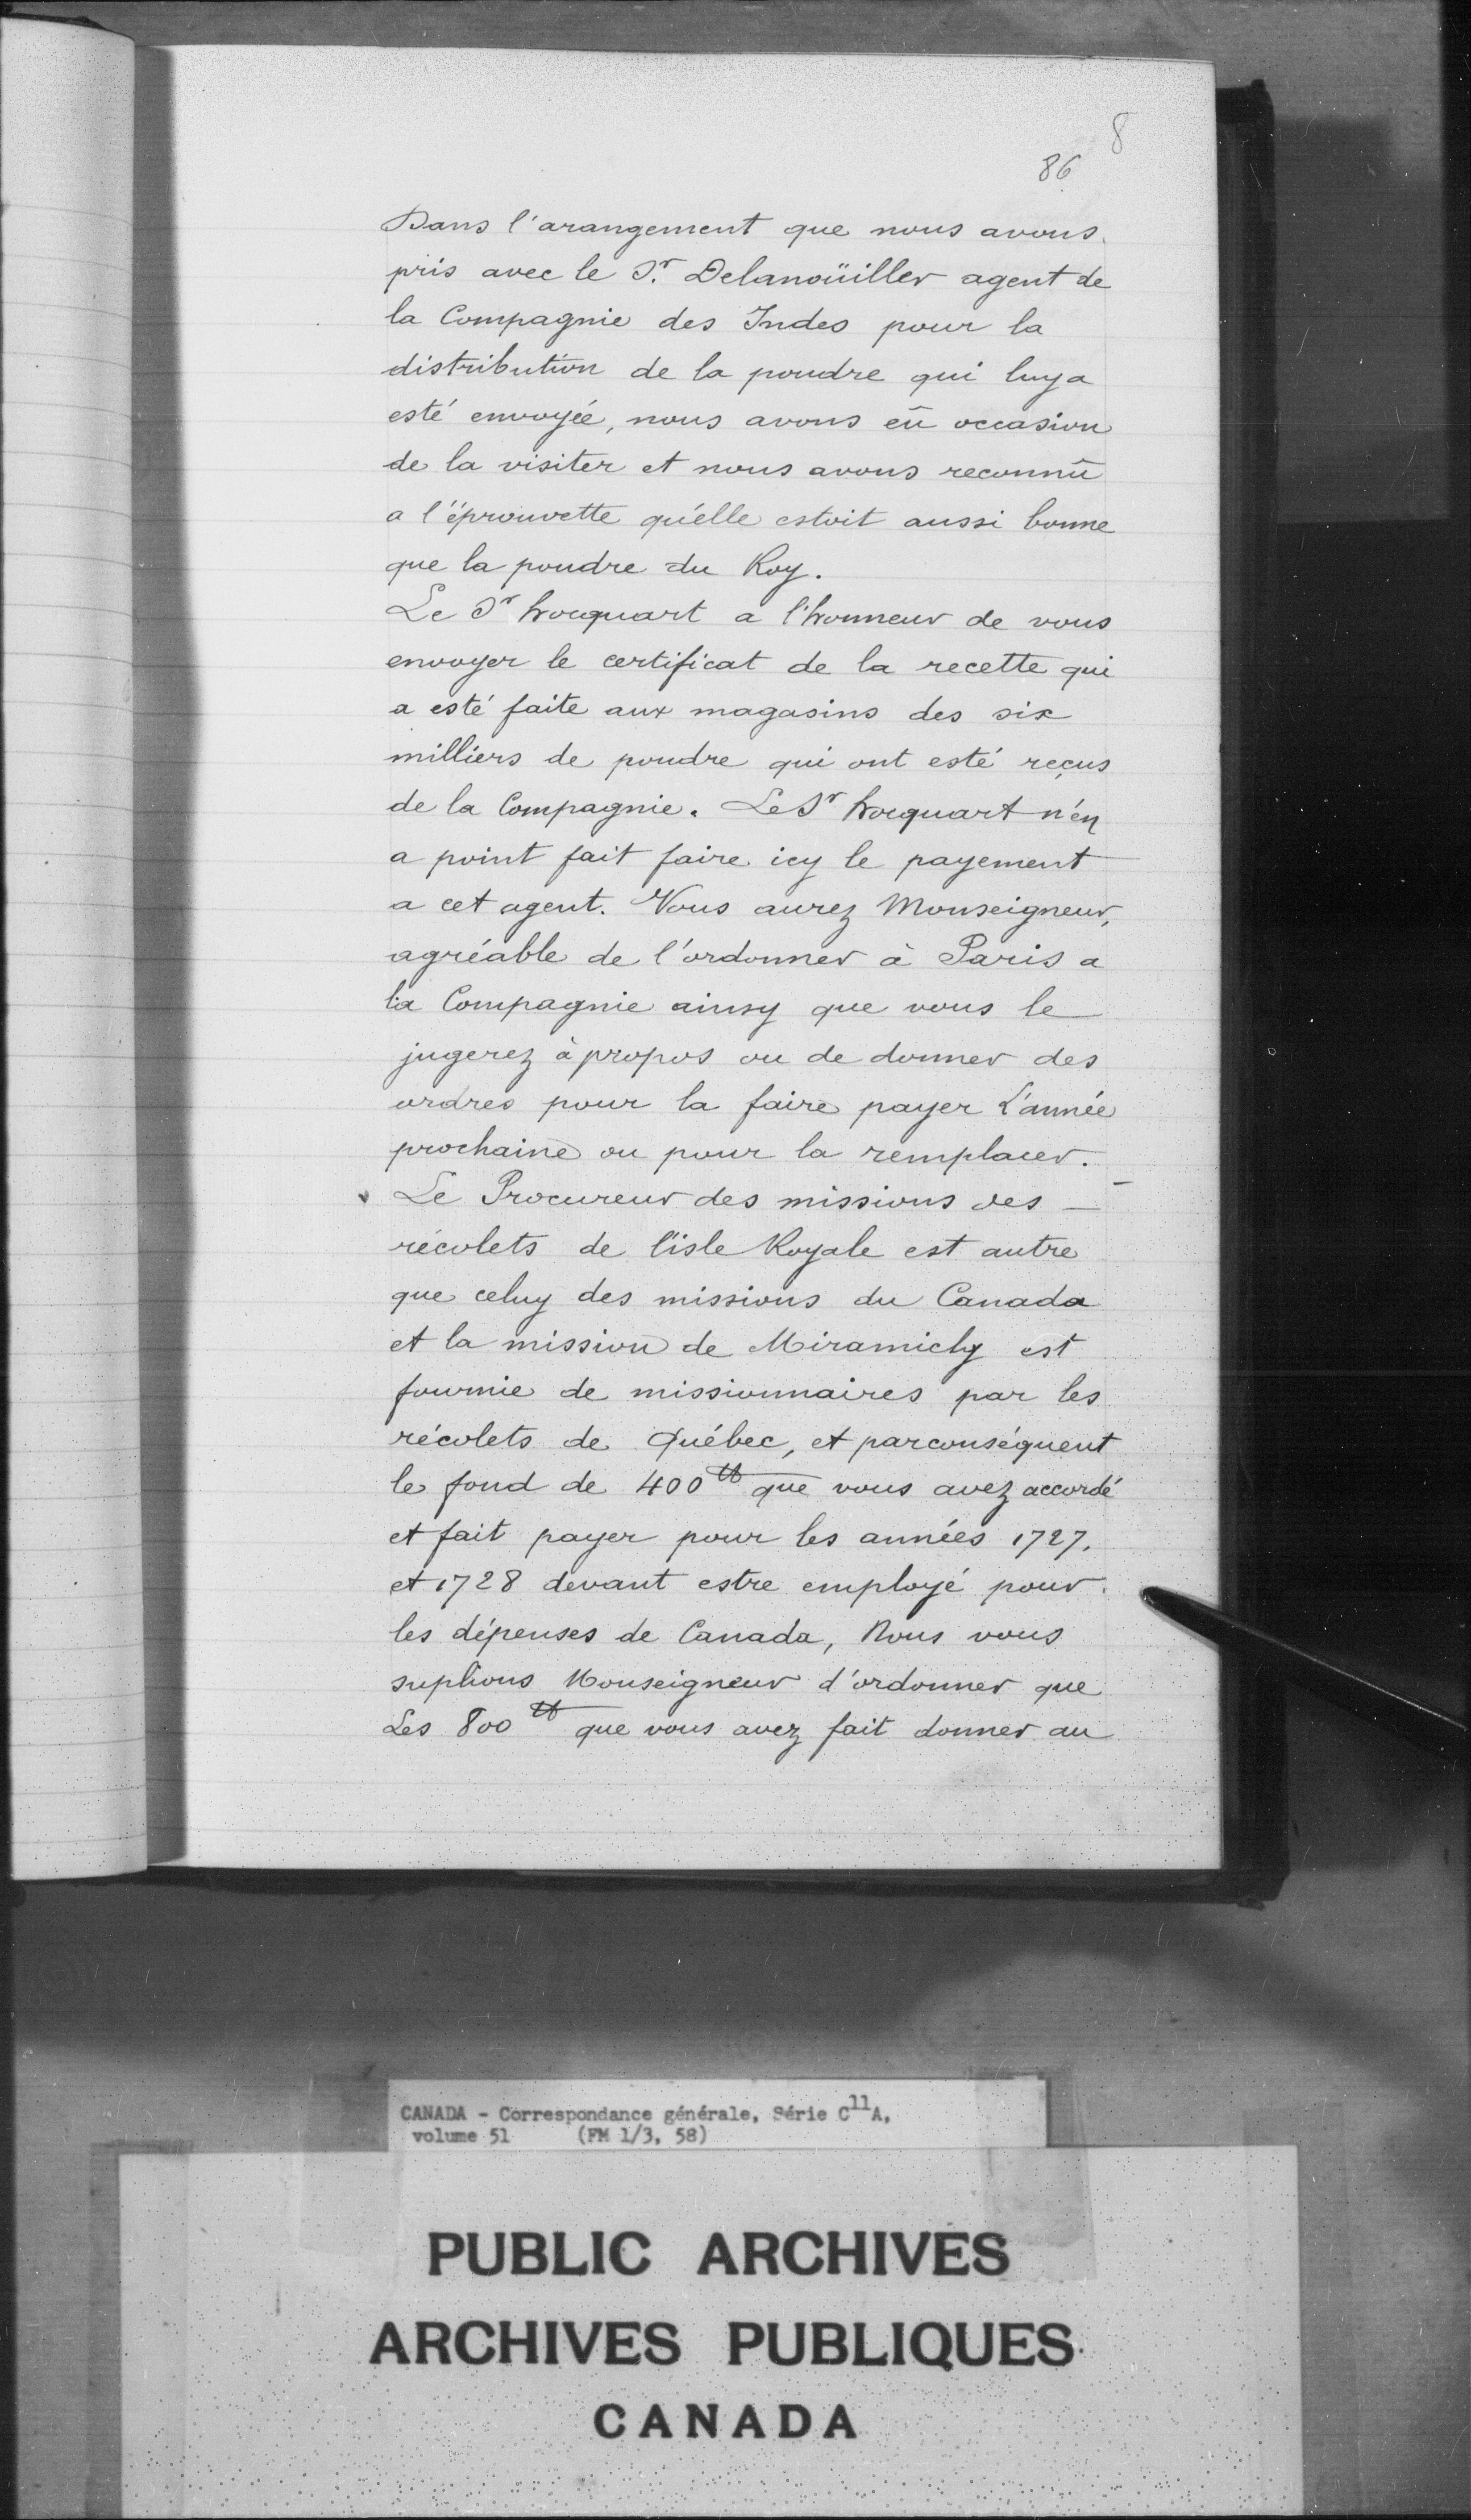 8
86
Dans l'arangement que nous avons
pris avec le Sr. Delanoüiller agent de
la Compagnie des Indes pour la
distribution de la poudre qui luy a
esté envoyée, nous avons eû occasion
de la visiter et nous avons reconnû
a l'éprouvette qu'elle estoit aussi bonne
que la poudre du Roy.
Le Sr hocquart a l'honneur de vous
envoyer le certificat de la recette qui
a esté faite aux magasins des six
milliers de poudre qui ont esté reçus
de la Compagnie. Le Sr hocquart n'en
a point fait faire icy le payement
a cet agent. Vous aurez Monseigneur,
agréable de l'ordonner à Paris a
la Compagnie ainsy que vous le
jugerez à propos ou de donner des
ordres pour la faire payer L'année
prochaine ou pour la remplacer. –
Le Procureur des missions des –
récolets de l'isle Royale est autre
que celuy des missions du Canada
et la mission de Miramichy est
fournie de missionnaires par les
récolets de Québec, et parconséquent
le fond de 400 ₶ que vous avez accordé
et fait payer pour les années 1727.
et 1728 devant estre employé pour
les dépenses de Canada, Nous vous
suplions Monseigneur d'ordonner que
Les 800 ₶ que vous avez fait donner au
CANADA - Correspondance générale, Série C11A,
volume 51 (FM 1/3, 58)
PUBLIC ARCHIVES
ARCHIVES PUBLIQUES
CANADA